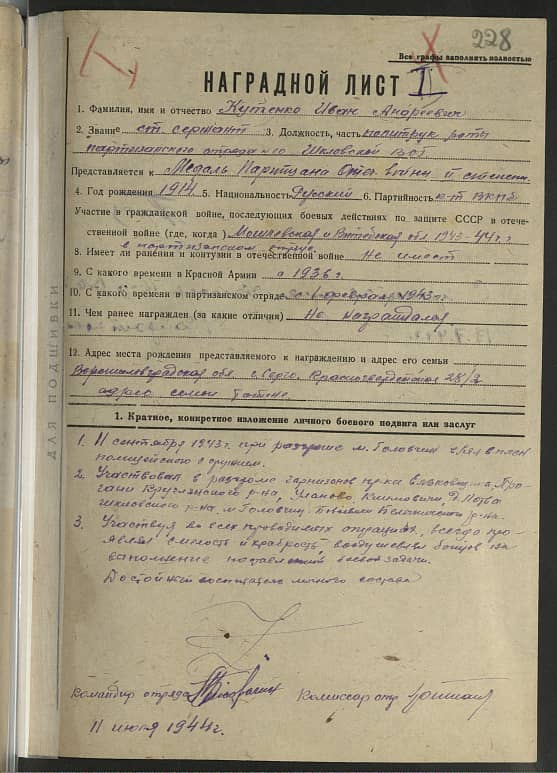 228
Все графы заполнять полностью
НАГРАДНОЙ ЛИСТ II
1. Фамилия, имя и отчество Кутенко Иван Андреевич
2. Звание ст. сержант 3. Должность, часть политрук роты
партизанского отряда №10 Шкловской ВОГ
Представляется к Медаль Партизана Отеч войны II степени.
4. Год рождения 1914 5. Национальность Русский 6. Партийность к-т ВКПб
Участие в гражданской войне, последующих боевых действиях по защите СССР и отече-
ственной войне (где, когда) Могилевская и Витебская обл. 1943-44г.г.
в партизанском отряде
8. Имеет ли ранения и контузии в отечественной войне Не имеет
9. С какого времени в Красной Армии с 1936 г.
10. С какого времени в партизанском отряде с февраля 1943 г.
11. Чем ранее награжден (за какие отличия) Не награждался
12. Адрес места рождения представляемого к награждению и адрес его семьи
Ворошиловградская обл г. Серго. Красногвардейская 28/2
адрес семьи тоже
ДЛЯ ПОДШИВКИ
1. Краткое, конкретное изложение личного боевого подвига или заслуг
1. 11 сентября 1943 г. при разгроме м. Головчин взял в плен
полицейского с оружием.
2. Участвовал в разгроме гарнизонов
Круглянского р-на,
Шкловского р-на. м. Головчин, Белыничского р-на.
3. Участвуя во всех проводимых операциях, всегда про-
являл смелость и храбрость воодушевляя бойцов на
выполнение поставленной боевой задачи.
Достойный воспитатель личного состава
Командир отряда Комиссар отр
11 июля 1944 г.